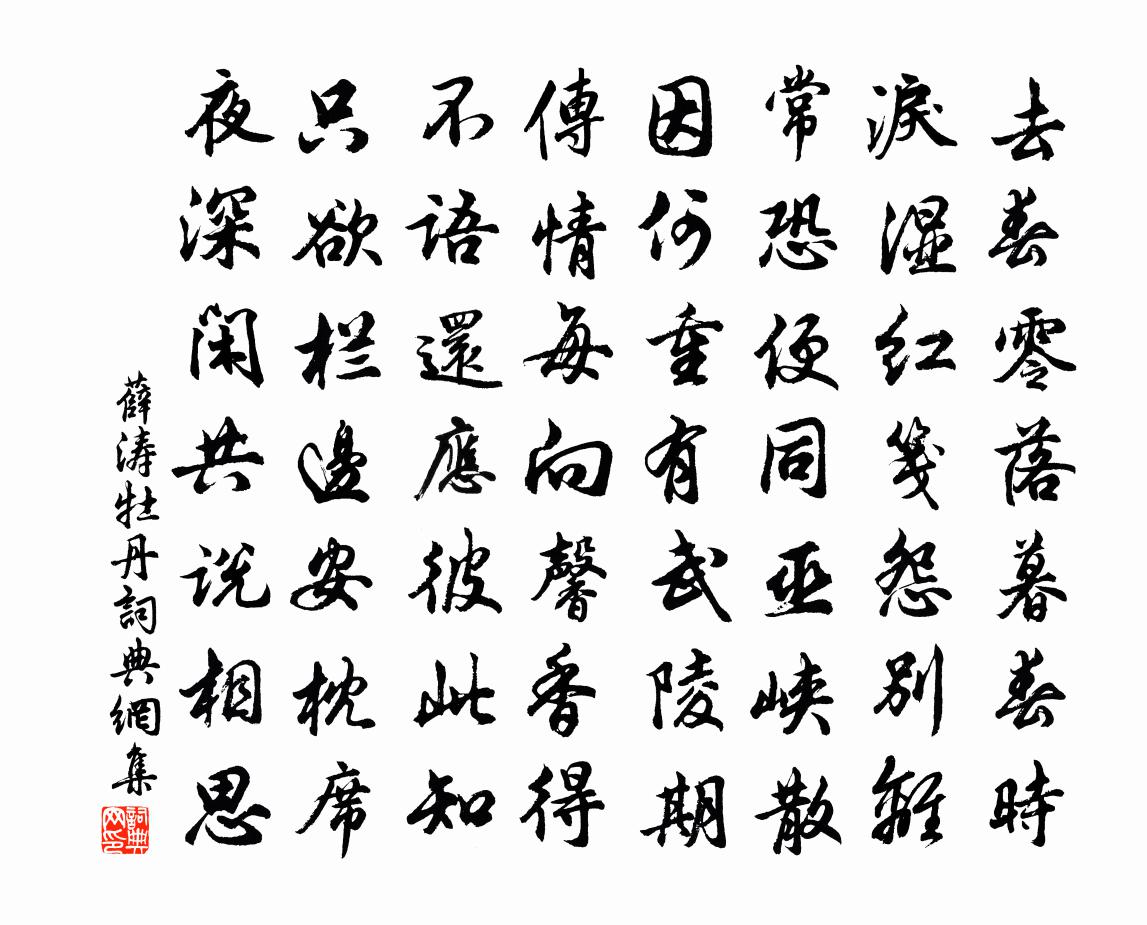 去春零落暮春時
淚濕红箋怨別離
常恐便同巫峽散
因何重有武陵期
傳情每向馨香得
不語還應彼此知
只欲栏邊安枕席
夜深閑共说相思
薛涛牡丹詞典網集
詞典网印